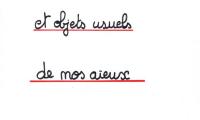 et objets usuels
de nos aieux